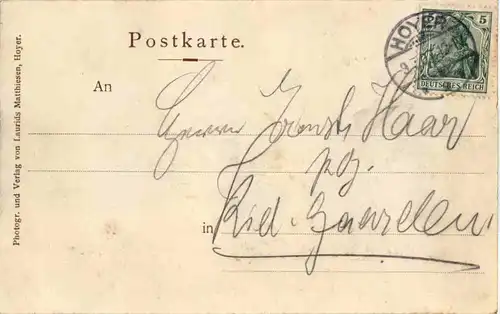 Postkarte.
HOYER
5
DEUTSCHES REICH
An
Herrn Ernst Haar
in Kiel-Gaarden
Photogr. und Verlag von Laurids Matthiesen, Hoyer.